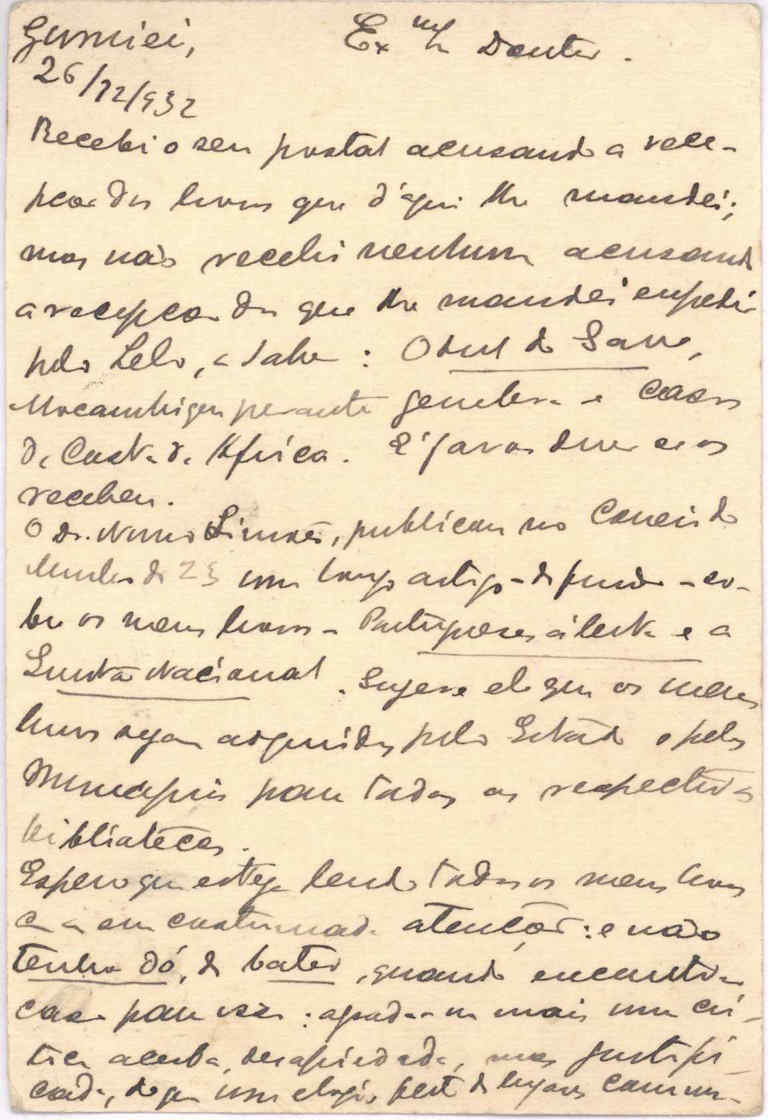 Gumiei,
Exmo Doutor.
26/12/932
Recebi o seu postal acusando a rece-
pção dos livros que d'aqui lhe mandei;
mas não recebi nenhum acusando
a recepção dos que lhe mandei expedir
pelo Lelo, a saber: O Sul do Save,
Moçambique perante Genebra e Casos
da Costa de Africa. É favor dizer se os
recebeu.
O dr. Nuno Simões, publicou no Comercio do
de 23 um longo artigo - de fundo - so-
bre os meus livros - Portuguezes á lerta e a
Nacional. Sugere ele que os meus
livros sejam adquiridos pelo Estado e pelos
Municipios para todas as respectivas
bibliotecas.
Espero que esteja lendo todos os meus livros
com a sua costumada atenção: e não
tenha dó, de bater, quando encontrar
caso para isso: agrada-me mais uma cri-
tica acerba, desapiedada, mas justifi-
cada, do que um elogio feito de lugares comuns.